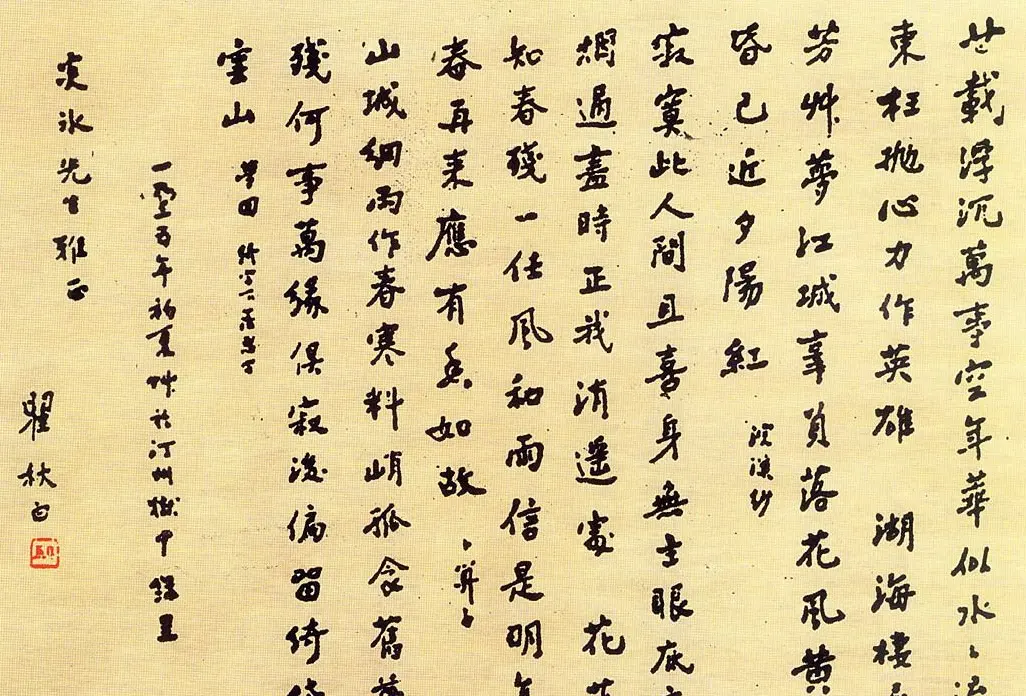 廿載浮沉萬事空年華似水〻流
東枉抛心力作英雄 湖海棲
芳艸夢江城辜負落花風黄
昏已近夕陽紅 浣溪紗
寂寞此人間且喜身無主眼底
烟過盡時正我逍遥處 花
知春殘一任風和雨信是明年
春再來應有香如故 卜算子
山城細雨作春寒料峭孤衾舊
殘何事萬緣俱寂後偏留綺
雲山
一九三五年初夏艸於汀州獄中 錄呈
炎冰先生雅正
瞿秋白